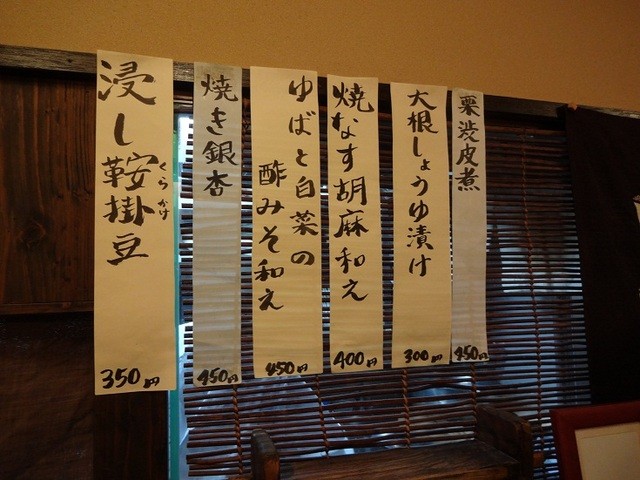 栗渋皮煮
450
大根しょうゆ漬け
300円
焼なす胡麻和え
400円
ゆばと白菜の
酢みそ和え
450円
焼き銀杏
450円
浸し鞍掛豆
くらかけ
350円